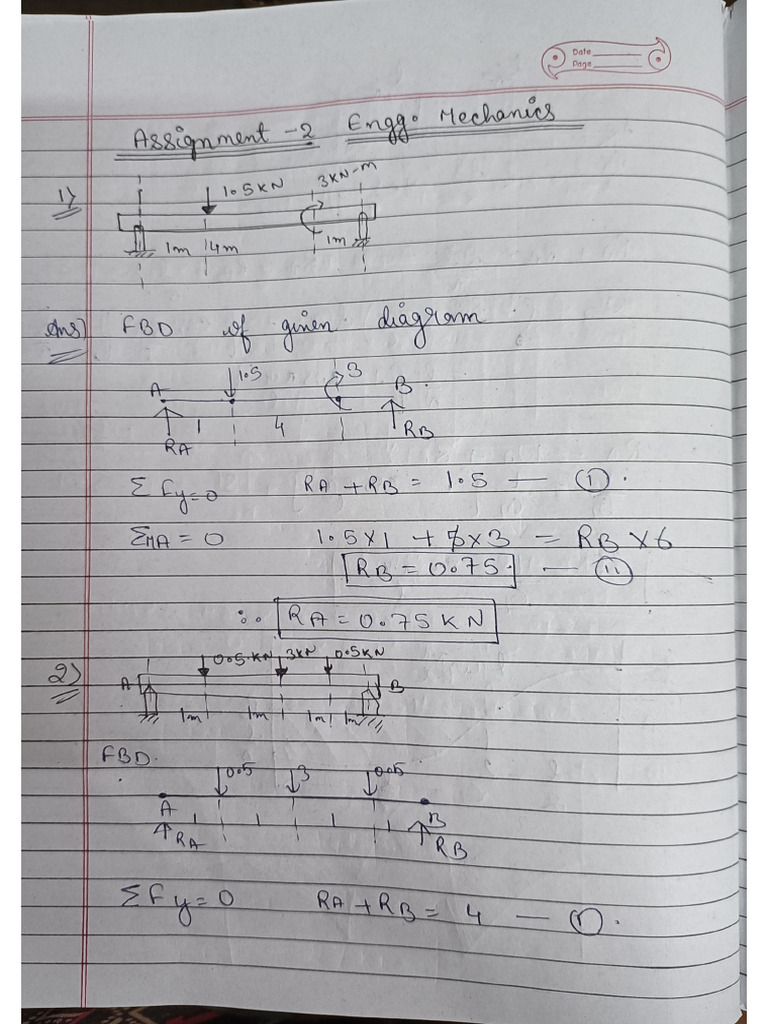 Date
Page
Assignment -2 Engg. Mechanics
1)
1.5KN 3KN-m
1m 4m 1m
Ans) FBD of given diagram
A 1.5 3 B
1 4
RA RB
ΣFy=0 RA + RB = 1.5 — (I).
ΣMA = 0 1.5×1 + 3 = RB × 6
RB = 0.75. — (II)
∴ RA = 0.75 KN
2)
0.5KN 3KN 0.5KN
A B
1m 1m 1m 1m
FBD.
0.5 3 0.5
A B
RA 1 1 1 1 RB
ΣFy=0 RA + RB = 4 — (I).